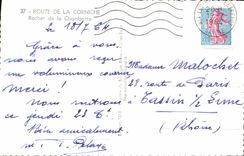 37 - ROUTE DE LA CORNICHE
Rocher de la Chambotte
Le 18/7 64
Grâce à vous,
nous avons reçu
un volumineux courrier
Merci !
Nous rentrons
ce jeudi 23 
Bien amicalement
Madame Malochet
28, route de Paris
à Tassin la ½ Lune
(Rhône)